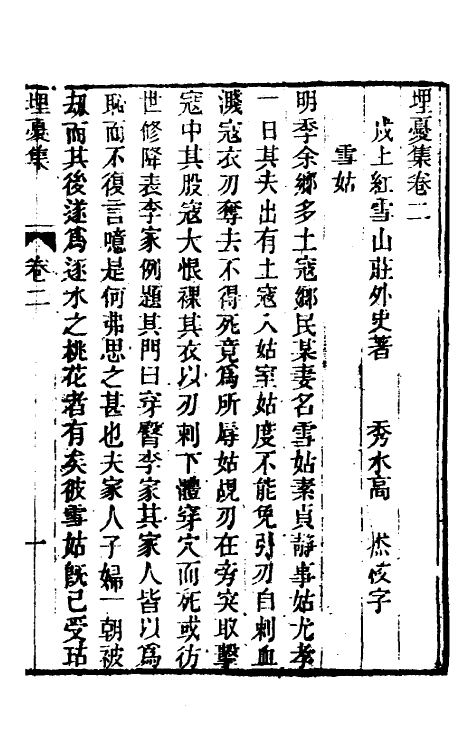 埋憂集卷二
戊上紅雪山莊外史著　秀水高　㷊校字
雪姑
明季余鄉多土寇鄉民某妻名雪姑素貞靜事姑尤孝
一日其夫出有土寇入姑室姑度不能免引刃自刺血
濺寇衣刃奪去不得死竟為所辱姑覘刃在旁突取擊
寇中其股寇大恨裸其衣以刃刺下體穿穴而死或仿
世修降表李家例題其門曰穿臀李家其家人皆以為
恥而不復言噫是何弗思之甚也夫家人子婦一朝被
劫而其後遂為逐水之桃花者有矣彼雪姑旣已受玷
埋憂集　卷二　一